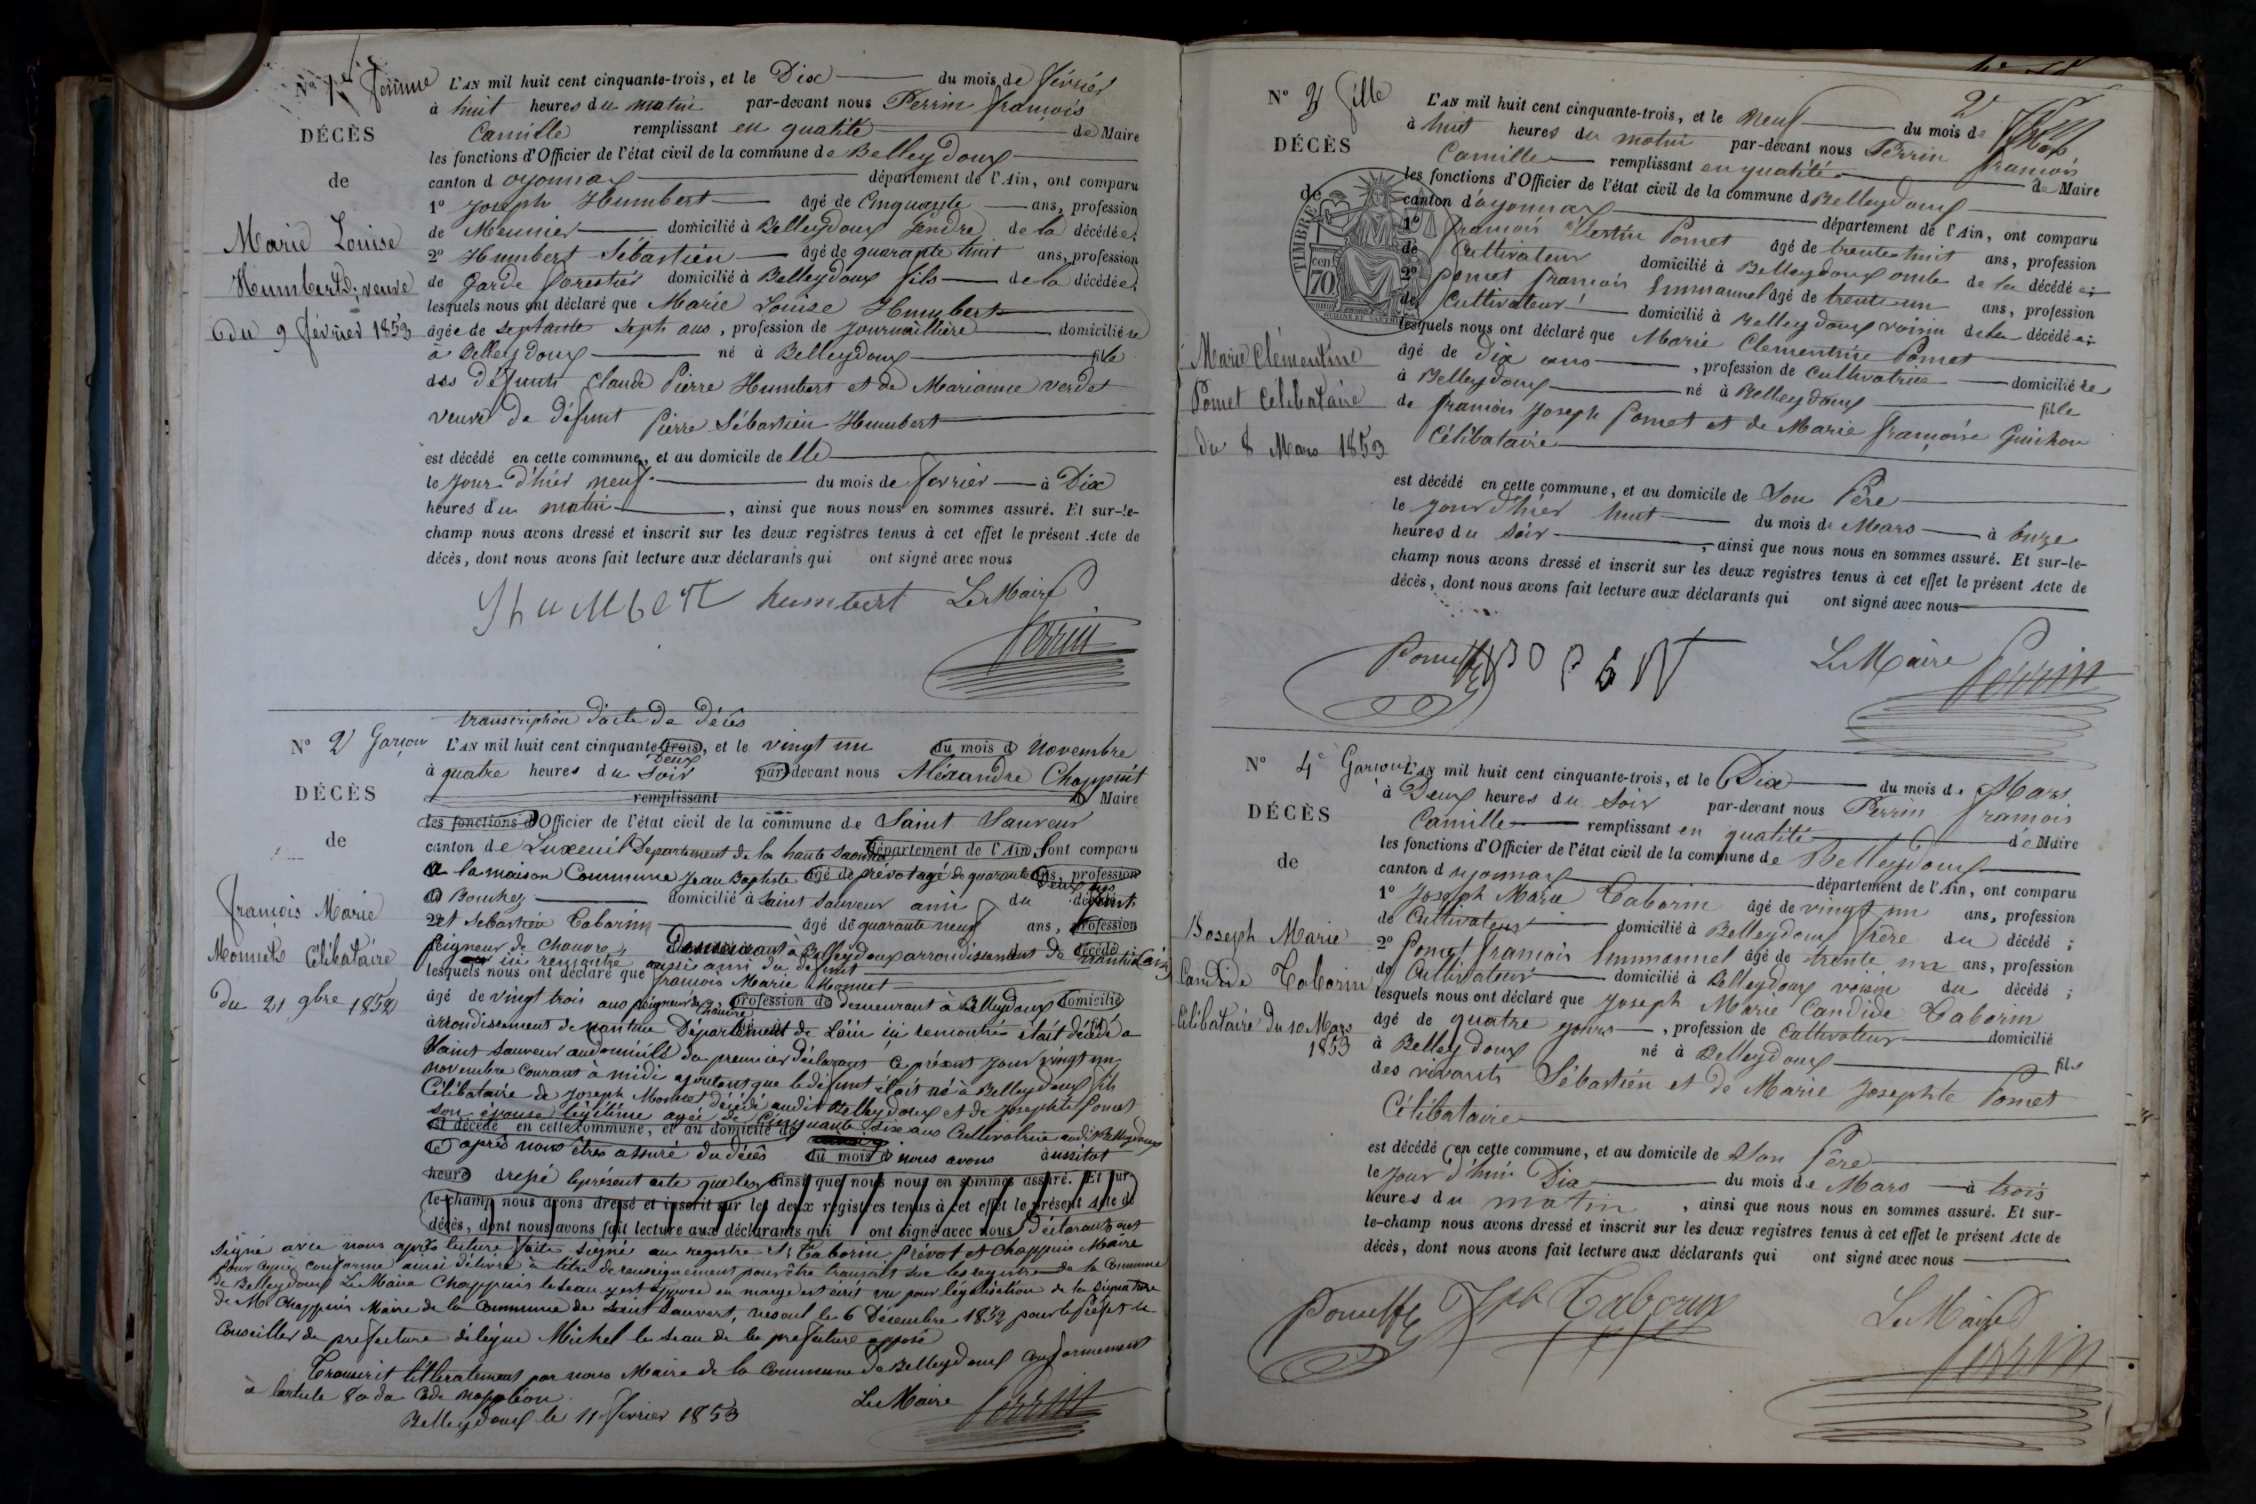 N° 1er femme
DÉCÈS
de
Marie Louise
Humbert, veuve
du 9 février 1853
L'AN mil huit cent cinquante-trois, et le Dix du mois de février
à huit heures du matin par-devant nous Perrin françois
Camille remplissant en qualité de Maire
les fonctions d'Officier de l'état civil de la commune de Belleydoux
canton d oyonnax département de l'Ain, ont comparu
1° Joseph Humbert âgé de Cinquante ans, profession
de Meunier domicilié à Belleydoux Gendre de la décédée;
2° Humbert Sébastien âgé de quarante huit ans, profession
de Garde forestier domicilié à Belleydoux fils de la décédée;
lesquels nous ont déclaré que Marie Louise Humbert
âgée de septante sept ans, profession de journaillière domiciliée
à Belleydoux né à Belleydoux fille
des Défunts Claude Pierre Humbert et de Marianne verdet
veuve de défunt Pierre Sébastien Humbert
est décédé en cette commune, et au domicile de Elle
le jour d'hier neuf du mois de février à Dix
heures du matin, ainsi que nous nous en sommes assuré. Et sur-le-
champ nous avons dressé et inscrit sur les deux registres tenus à cet effet le présent Acte de
décès, dont nous avons fait lecture aux déclarants qui ont signé avec nous
humbert Le Maire
Perrin
transcription d'acte de Décès
N° 2 Garçon
DÉCÈS
de
françois Marie
Monnet Célibataire
du 21 9bre 1852
L'AN mil huit cent cinquante-trois, et le vingt un du mois d novembre
Deux
à quatre heures du soir par-devant nous Aléxandre Chappuit
remplissant Maire
les fonctions d'Officier de l'état civil de la commune de Saint Sauveur
canton de Luxeuil Département de la haute Saonne département de l'Ain, ont comparu
a la maison Commune Jean Baptiste âgé de prévot agé de quarante ans, profession
Deux ans
d Bouchez domicilié à Saint Sauveur ami du défunt
2° et Sébastien Taborin âgé de quarante neuf ans, profession
Peigneur de Chanvre demeurant à Belleydoux arrondissement de nantua
ici rencontré aussi ami du défunt
lesquels nous ont déclaré que françois Marie Monnet
âgé de vingt trois ans peigneur de Chanvre profession de demeurant à Belleydoux domicilié
arrondissement de nantua Département de L'ain ici rencontré était décédé a
Saint Sauveur au domicile du premier déclarant Ce présent jour vingt un
novembre courant à midi ajoutant que le défunt était né à Belleydoux fils
Célibataire de Joseph Monnet décédé audit Belleydoux et de Josephte Pomet
son épouse légitime agée de Cinquante six ans Cultivatrice audit Belleydoux
est décédé en cette commune, et au domicile de
après nous être assuré du décès du mois d nous avons aussitot
heure dressé le présent acte que les ainsi que nous nous en sommes assuré. Et sur-
le-champ nous avons dressé et inscrit sur les deux registres tenus à cet effet le présent Acte de
décès, dont nous avons fait lecture aux déclarants qui ont signé avec nous Déclarants ont
signé avec nous après lecture faite signé au registre St Taborin Prévot et Chappuis Maire
pour copie conforme ainsi délivré à titre de renseignement pour être transcrit sur les registres de la Commune
de Belleydoux Le Maire Chappuis le seau y est apposé en marge est écrit vu pour légalisation de la signature
de Mr Chappuis Maire de la Commune de Saint Sauveur, vesoul le 6 Décembre 1852 pour le Préfet le
Conseiller de préfecture délégué Michel le seau de la préfecture apposé
Transcrit littéralement par nous Maire de la Commune de Belleydoux Conformement
à l'article 80 du Code napoléon
Belleydoux le 11 février 1853 Le Maire
Perrin
N° 3 fille
DÉCÈS
de
TIMBRE
cen
70
Marie Clémentine
Pomet Célibataire
du 8 Mars 1853
L'AN mil huit cent cinquante-trois, et le neuf du mois de Mars
à huit heures du matin par-devant nous Perrin françois
Camille remplissant en qualité de Maire
les fonctions d'Officier de l'état civil de la commune d Belleydoux
canton d'oyonnax département de l'Ain, ont comparu
1° françois Bertin Pomet âgé de trente huit ans, profession
de Cultivateur domicilié à Belleydoux oncle de la décédée;
2° Pomet françois Emmanuel âgé de trente un ans, profession
de Cultivateur domicilié à Belleydoux voisin de la décédée;
lesquels nous ont déclaré que Marie Clementine Pomet
âgé de Dix ans, profession de Cultivatrice domiciliée
à Belleydoux né à Belleydoux fille
de françois Joseph Pomet et de Marie françoise Guichon
Célibataire
est décédé en cette commune, et au domicile de Son Père
le jour d'hier huit du mois de Mars à onze
heures du soir, ainsi que nous nous en sommes assuré. Et sur-le-
champ nous avons dressé et inscrit sur les deux registres tenus à cet effet le présent Acte de
décès, dont nous avons fait lecture aux déclarants qui ont signé avec nous
Le Maire Perrin
N° 4e Garçon
DÉCÈS
de
Joseph Marie
Candide Taborin
Célibataire du 10 Mars
1853
L'AN mil huit cent cinquante-trois, et le Dix du mois de Mars
à Deux heures du soir par-devant nous Perrin françois
Camille remplissant en qualité de Maire
les fonctions d'Officier de l'état civil de la commune de Belleydoux
canton d oyonnax département de l'Ain, ont comparu
1° Joseph Marie Taborin âgé de vingt un ans, profession
de Cultivateur domicilié à Belleydoux frère du décédé;
2° Pomet françois Emmanuel âgé de trente un ans, profession
de Cultivateur domicilié à Belleydoux voisin du décédé;
lesquels nous ont déclaré que Joseph Marie Candide Taborin
âgé de quatre jours, profession de Cultivateur domicilié
à Belleydoux né à Belleydoux fils
des vivants Sébastien et de Marie Josephte Pomet
Célibataire
est décédé en cette commune, et au domicile de Son Père
le jour d'hui Dix du mois de Mars à trois
heures du matin, ainsi que nous nous en sommes assuré. Et sur-
le-champ nous avons dressé et inscrit sur les deux registres tenus à cet effet le présent Acte de
décès, dont nous avons fait lecture aux déclarants qui ont signé avec nous
Jph Taborin Le Maire
Perrin